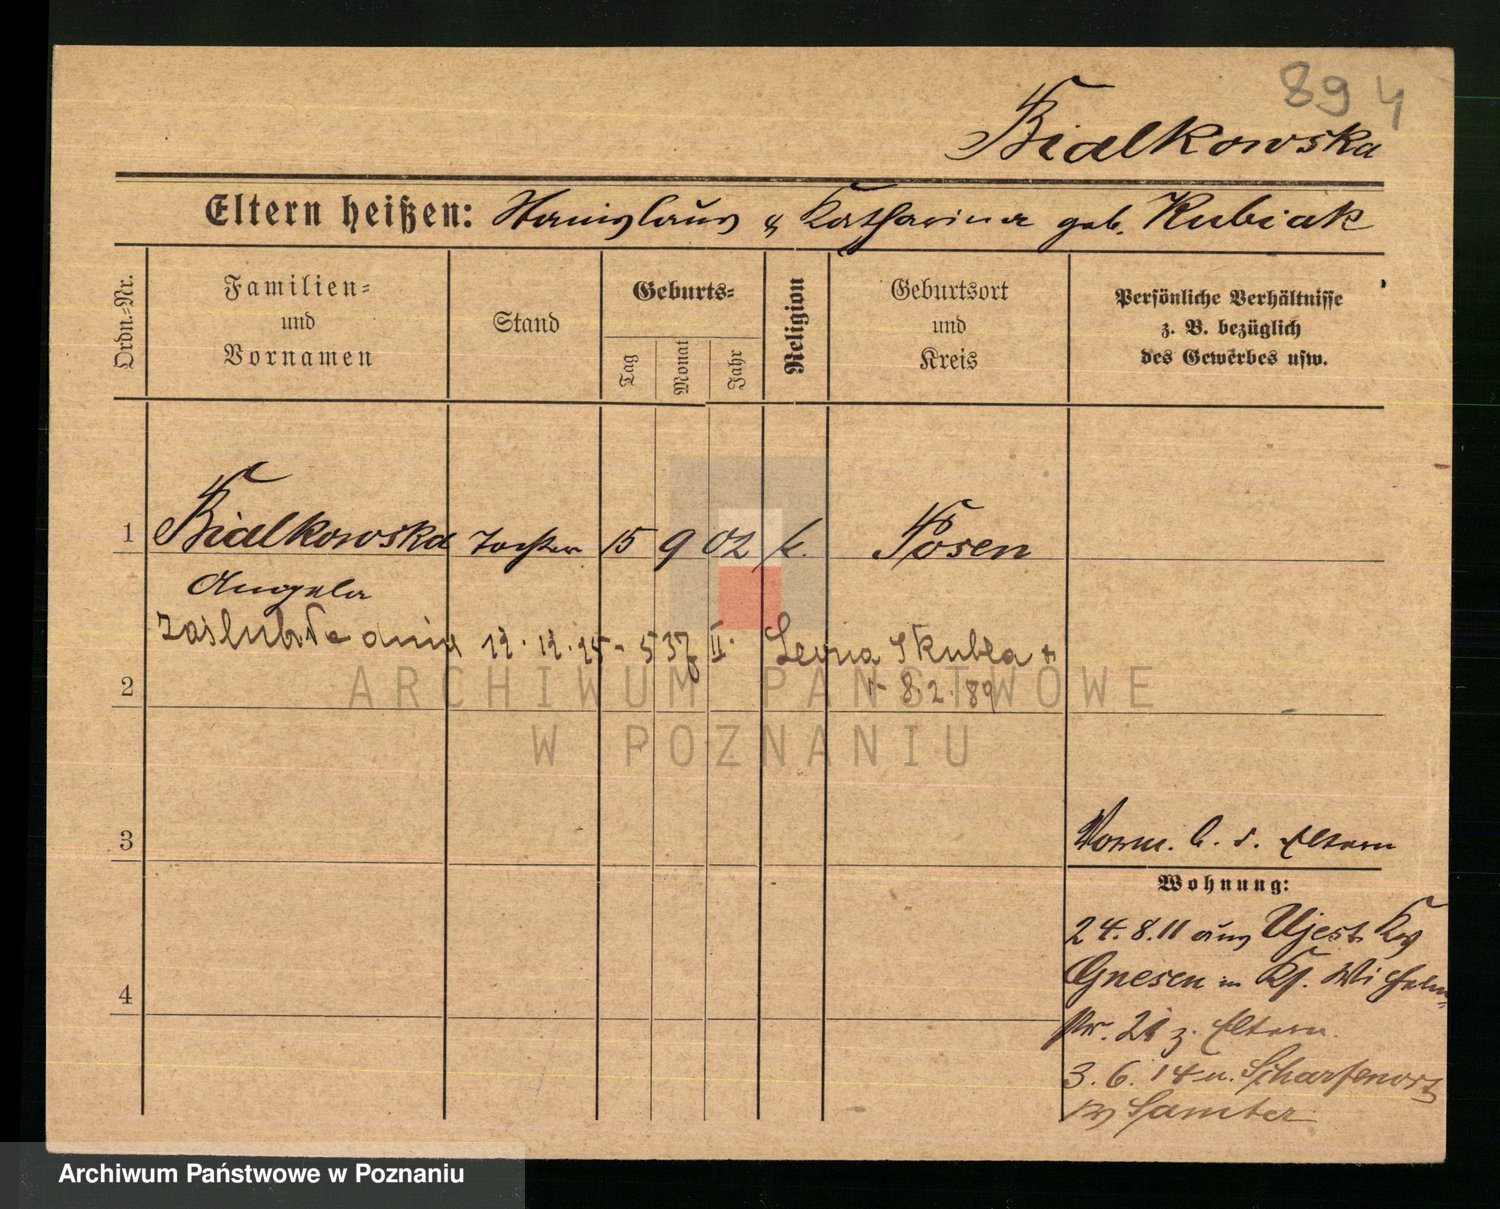 894
Bialkowska
Eltern heißen: Stanislaus & Katharina geb. Kubiak
Ordn.-Nr.
Familien-
und
Vornamen
Stand
Geburts-
Tag
Monat
Jahr
Religion
Geburtsort
und
Kreis
Persönliche Verhältnisse
z. B. bezüglich
des Gewerbes usw.
1 Bialkowska Tochter 15 9 02 k. Posen
Angela
zaślubiła dnia 12. 12. 25 - 537 II. Skubla
8. 2. 89
2
ARCHIWUM PAŃSTWOWE
W POZNANIU
3
Vorm. b. d. Eltern
Wohnung:
24. 8. 11 aus Ujest Kr
Gnesen in Ks. Wilhelm-
str. 21 z. Eltern.
3. 6. 14 n. Scharfenort
Kr Samter
4
Archiwum Państwowe w Poznaniu